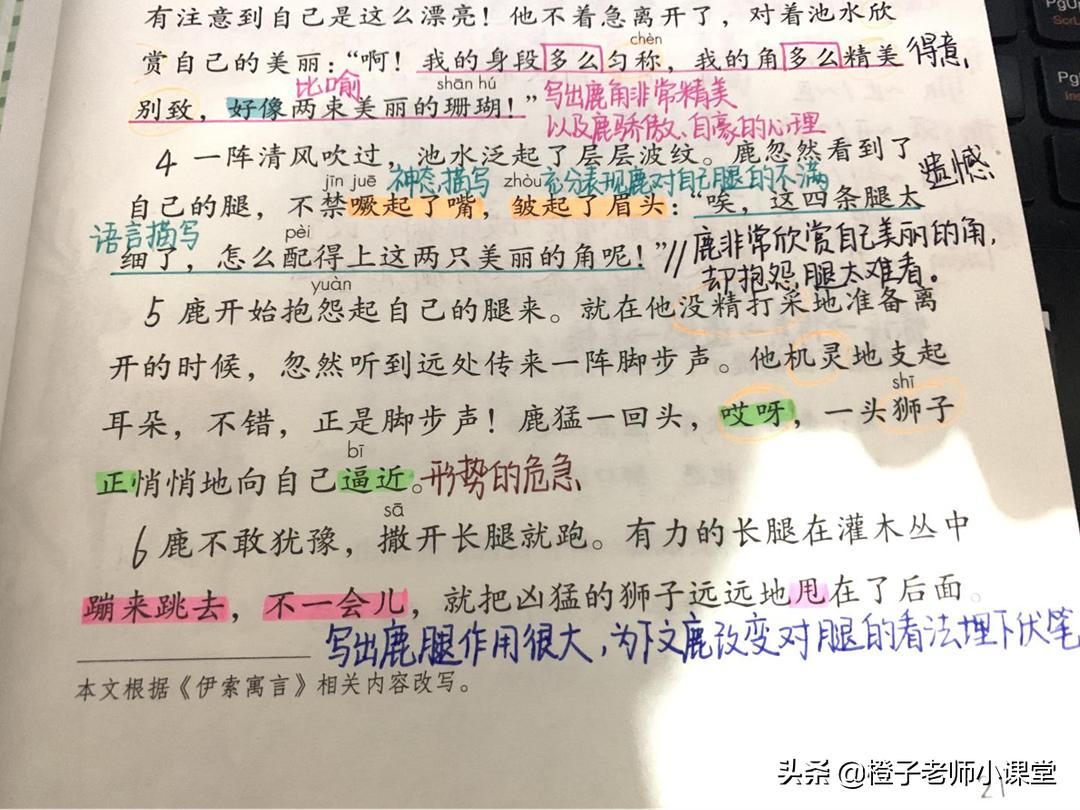 有注意到自己是这么漂亮！他不着急离开了，对着池水欣
chèn
赏自己的美丽：“啊！我的身段多么匀称，我的角多么精美
得意
比喻
shān hú
别致，好像两束美丽的珊瑚！”
写出鹿角非常精美
以及鹿骄傲、自豪的心理
4 一阵清风吹过，池水泛起了层层波纹。鹿忽然看到了
遗憾
jīn juē
神态描写
zhòu
充分表现鹿对自己腿的不满
自己的腿，不禁噘起了嘴，皱起了眉头：“唉，这四条腿太
语言描写
pèi
细了，怎么配得上这两只美丽的角呢！”//
鹿非常欣赏自己美丽的角，
却抱怨腿太难看。
yuàn
5 鹿开始抱怨起自己的腿来。就在他没精打采地准备离
开的时候，忽然听到远处传来一阵脚步声。他机灵地支起
shī
耳朵，不错，正是脚步声！鹿猛一回头，哎呀，一头狮子
bī
正悄悄地向自己逼近。
形势的危急
sā
6 鹿不敢犹豫，撒开长腿就跑。有力的长腿在灌木丛中
蹦来跳去，不一会儿，就把凶猛的狮子远远地甩在了后面。
写出鹿腿作用很大，为下文鹿改变对腿的看法埋下伏笔
本文根据《伊索寓言》相关内容改写。
头条 @橙子老师小课堂
21
PgUp